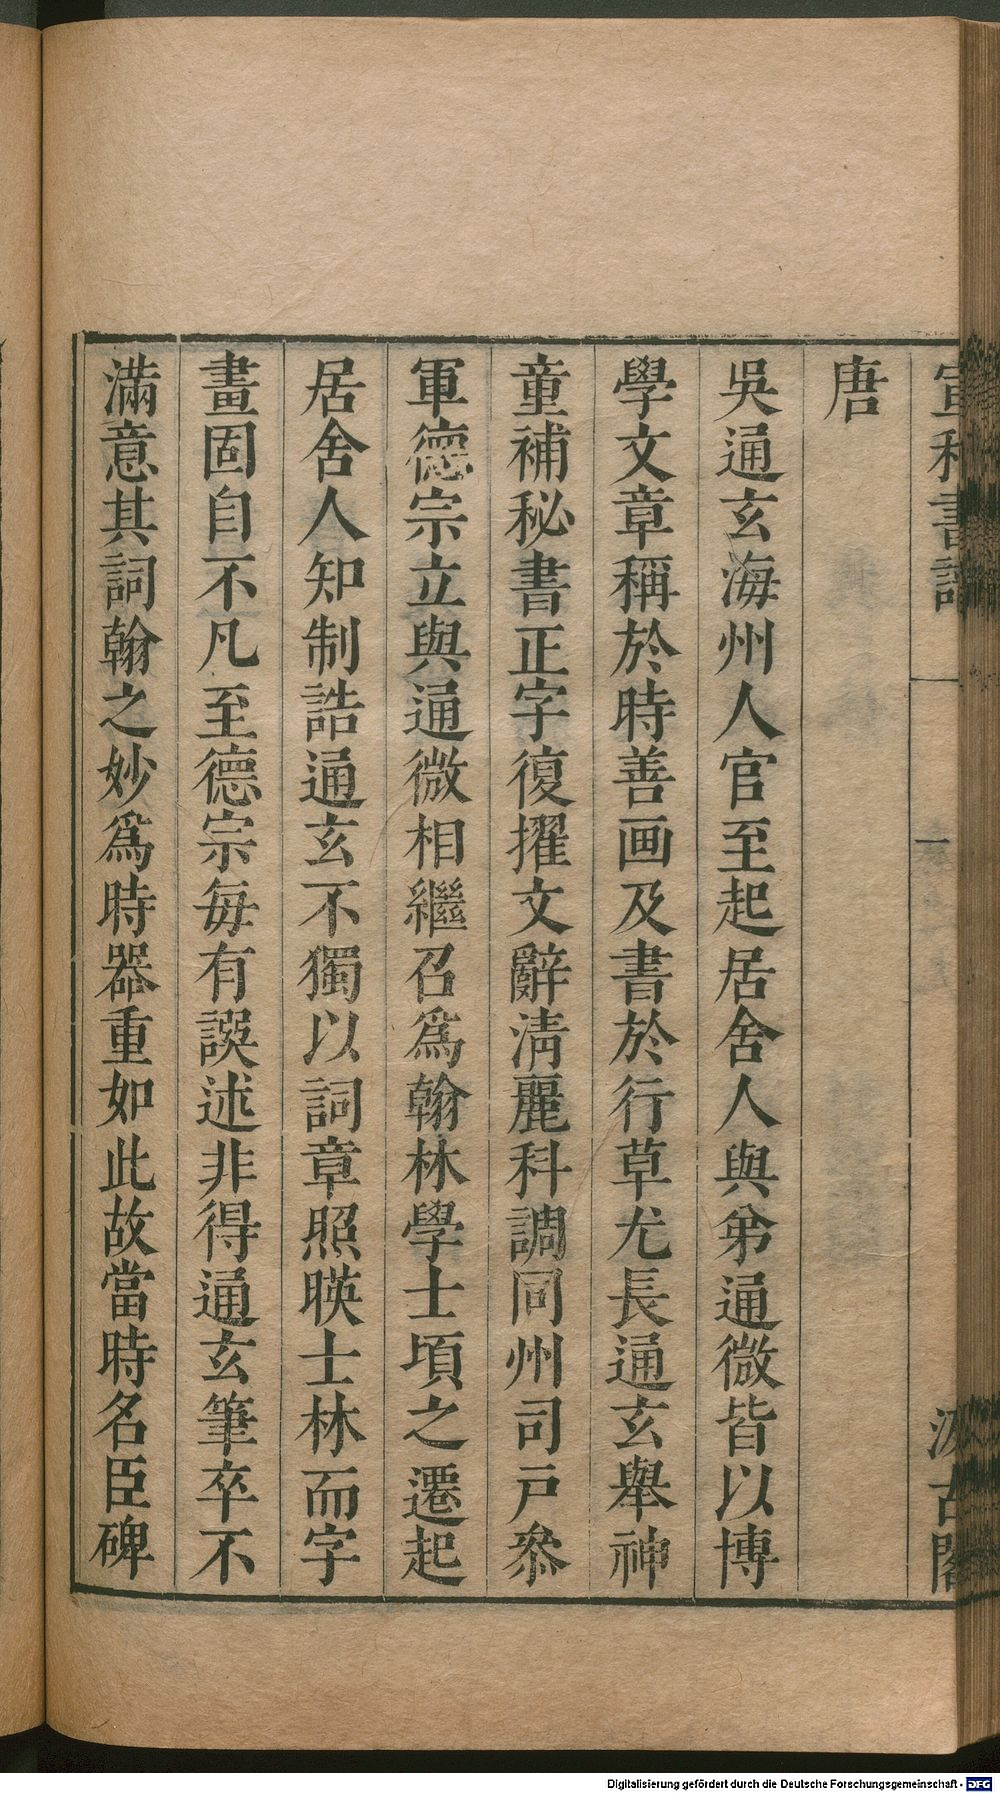 宣和書譜 一 汲古閣
唐
吳通玄海州人官至起居舍人與弟通微皆以博
學文章稱於時善画及書於行草尤長通玄舉神
童補秘書正字復擢文辭淸麗科調同州司戸叅
軍德宗立與通微相繼召爲翰林學士頃之遷起
居舍人知制誥通玄不獨以詞章照暎士林而字
畫固自不凡至德宗毎有譔述非得通玄筆卒不
滿意其詞翰之妙爲時器重如此故當時名臣碑
Digitalisierung gefördert durch die Deutsche Forschungsgemeinschaft - DFG